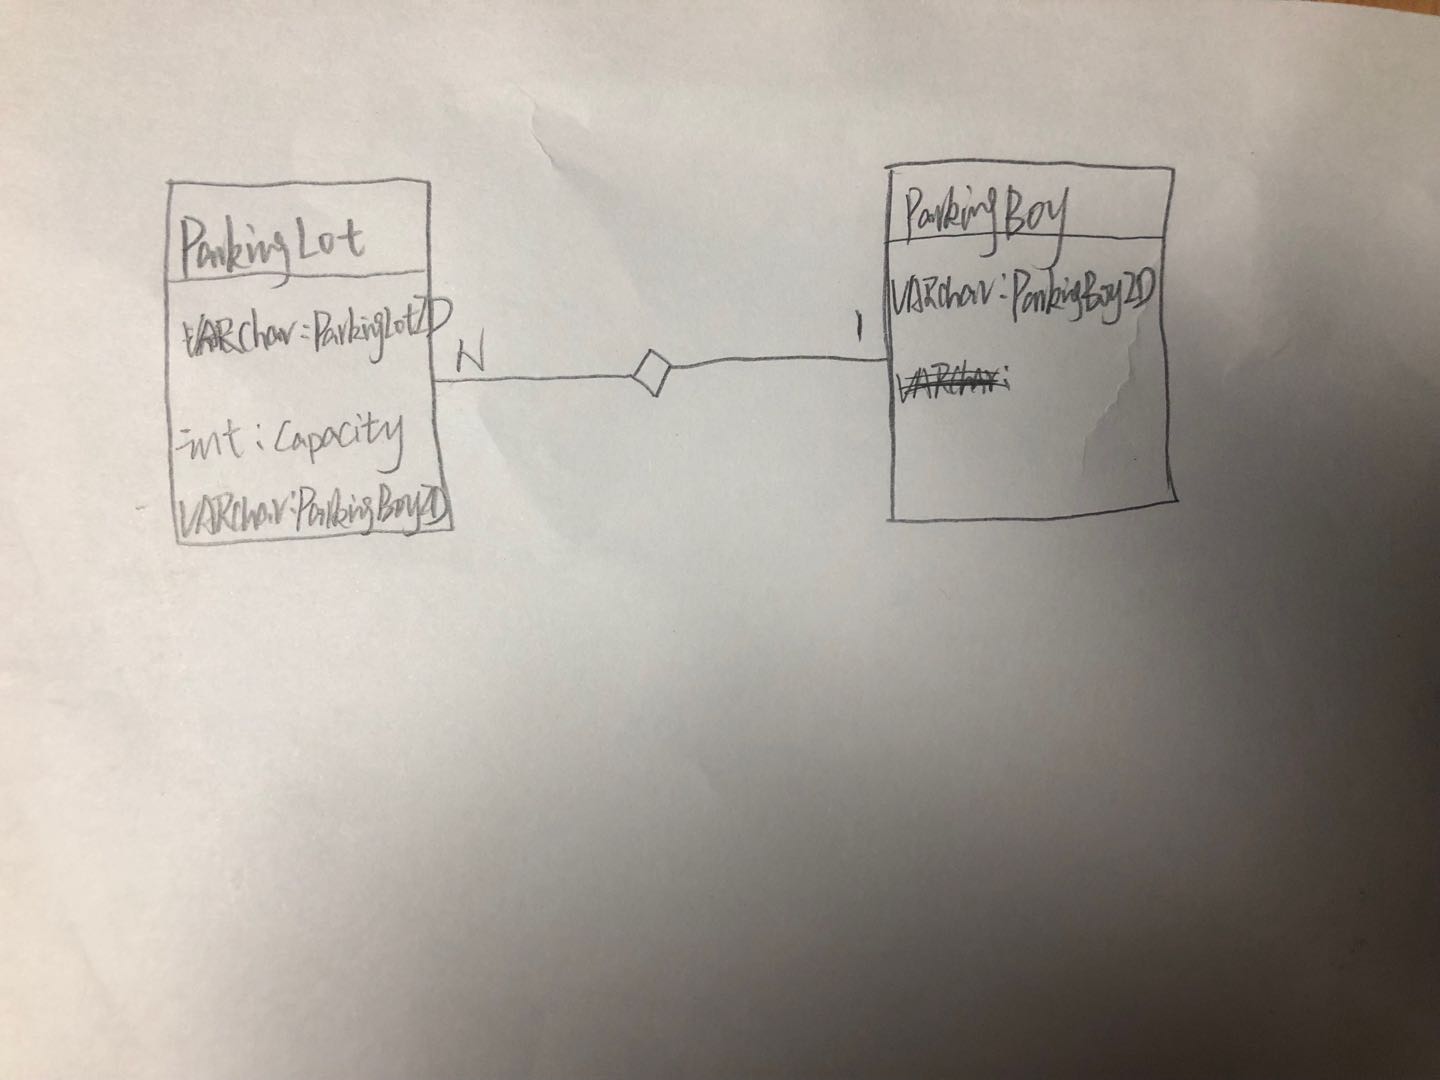 ParkingLot
VARchar:ParkingLotID
int:Capacity
VARchar:ParkingBoyID
N
1
ParkingBoy
VARchar:ParkingBoyID
VARchar: